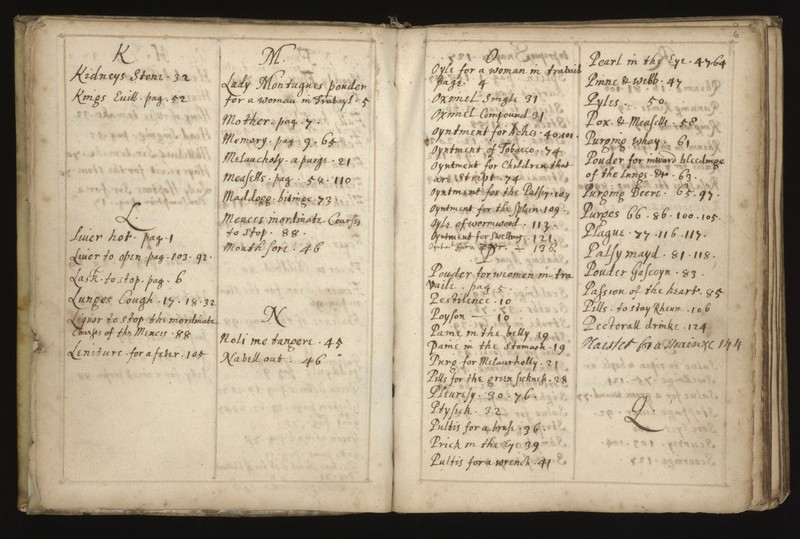 K
Kidneys Stone. 32
Kings Euill. pag. 52
L.
Liuer hot. pag. 1
Liuer to open pag. 103. 92.
Lask. to stop. pag. 6
Lunges Cough. 17. 18. 32
Liquor to stop the inordinate
Courses of the Mences. 88
Leniture for a feber. 105
M.
Lady Montagues pouder
for a woman in Trabayl. 5
Mother. pag. 7.
Memory. pag. 9. 65
Melancholy. a purge. 21
Measells. pag. 58. 110
Maddogg. bitinge. 73
Mences inordinate Courses
to stop. 88.
Mouth sore. 46
N
Noli me tangere. 45
Nabell out. 46
O
Oyle for a woman in trabail
page. 4
Oximel Single 31
Oximel Compound 31
Oyntment for Aches. 40. 101.
Oyntment of Tobacco. 74
Oyntment for Children that
are Stript. 74
Oyntment for the Palsey. 107
Oyntment for the Spleen. 109.
Oyle of wormwood. 113.
Oyntment for Swelling. 121
for a 136
P
Pouder for women in tra
vaile. pag 5.
Pestilence. 10
Poyson 10
Paine in the belly 19
Paine in the Stomach. 19
Purg for Melancholly. 21
Pills for the green sicknes. 28
Pleuresy. 30. 76.
Ptysick. 32
Pultis for a bruse. 36
Prick in the eye 39
Pultis for a wrench. 41
6
Pearl in the Eye. 47. 64
Pinne & webb. 47
Pyles. 50
Pox & Measells. 58
Purging whay. 61
Pouder for inward bleedinge
of the Lungs. &c. 63.
Purging Beere. 65. 97.
Purges 66. 86. 100. 105.
Plague. 77. 116. 117.
Palsy mayd. 81. 118.
Pouder Gascoyn. 83.
Passion of the heart. 85
Pills. to stay Rheum. 106
Pectorall drinke. 124
Plaister for a Strain &c 144
Q.